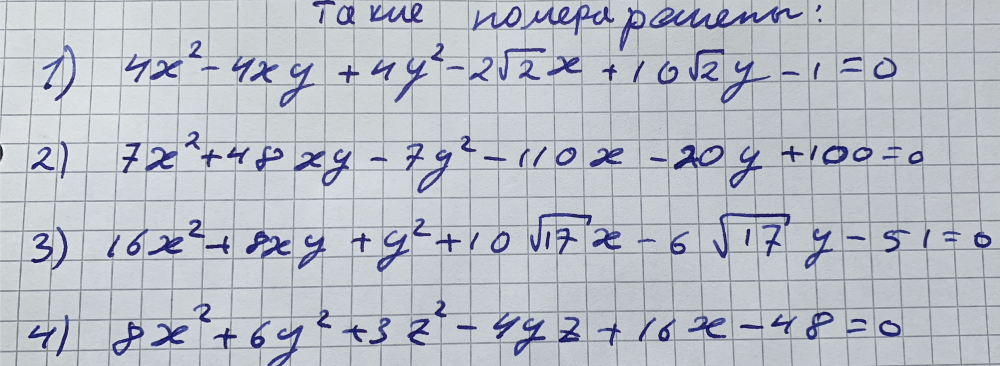 Такие номера решены:
1) 4x² - 4xy + 4y² - 2√2x + 10√2y - 1 = 0
2) 7x² + 48xy - 7y² - 110x - 20y + 100 = 0
3) 16x² + 8xy + y² + 10√17x - 6√17y - 51 = 0
4) 8x² + 6y² + 3z² - 4yz + 16x - 48 = 0